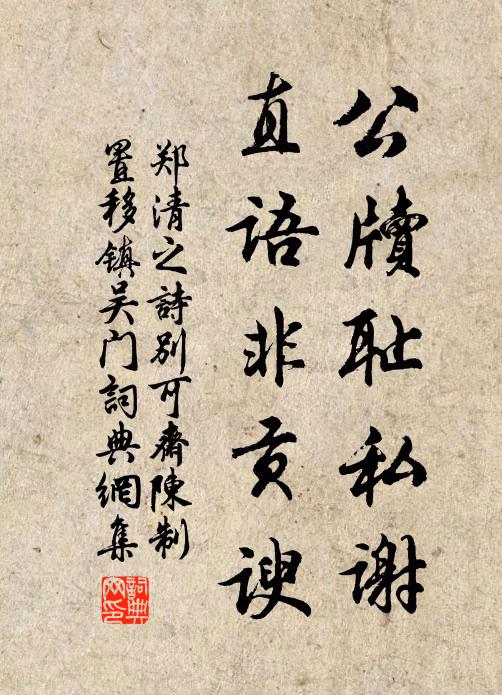 公牍耻私谢
直语非贡谀
郑清之詩别可齋陳制
置移鎮吴门詞典網集
詞典
网印